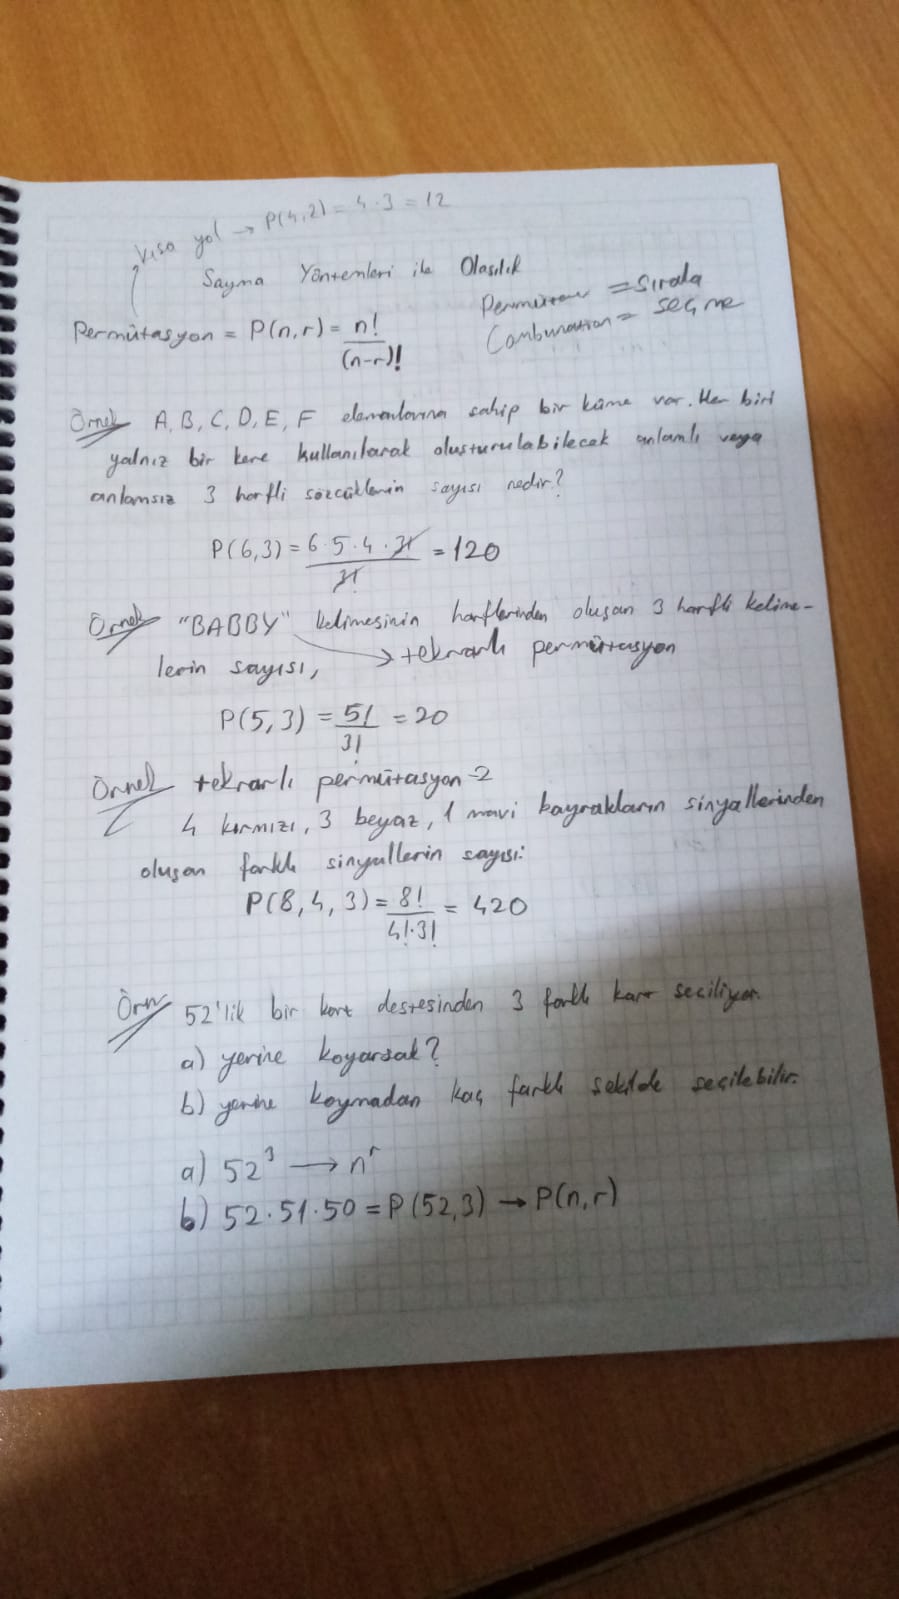 Kısa yol → P(4,2) = 4·3 = 12
Sayma Yöntemleri ile Olasılık
Permütasyon = P(n,r) = n! / (n-r)!
Permütasyon = Sırala
Combunation = seçme
Örnek A, B, C, D, E, F elemanlarına sahip bir küme var. Her biri
yalnız bir kere kullanılarak oluşturulabilecek anlamlı veya
anlamsız 3 harfli sözcüklerin sayısı nedir?
P(6,3) = 6·5·4·3! / 3! = 120
Örnek "BABBY" kelimesinin harflerinden oluşan 3 harfli kelime-
lerin sayısı, → tekrarlı permütasyon
P(5,3) = 5! / 3! = 20
Örnek tekrarlı permütasyon-2
4 kırmızı, 3 beyaz, 1 mavi bayrakların sinyallerinden
oluşan farklı sinyallerin sayısı:
P(8,4,3) = 8! / 4!·3! = 420
Örn 52'lik bir kart destesinden 3 farklı kart seçiliyor.
a) yerine koyarsak?
b) yerine koymadan kaç farklı şekilde seçilebilir.
a) 52³ → nʳ
b) 52·51·50 = P(52,3) → P(n,r)